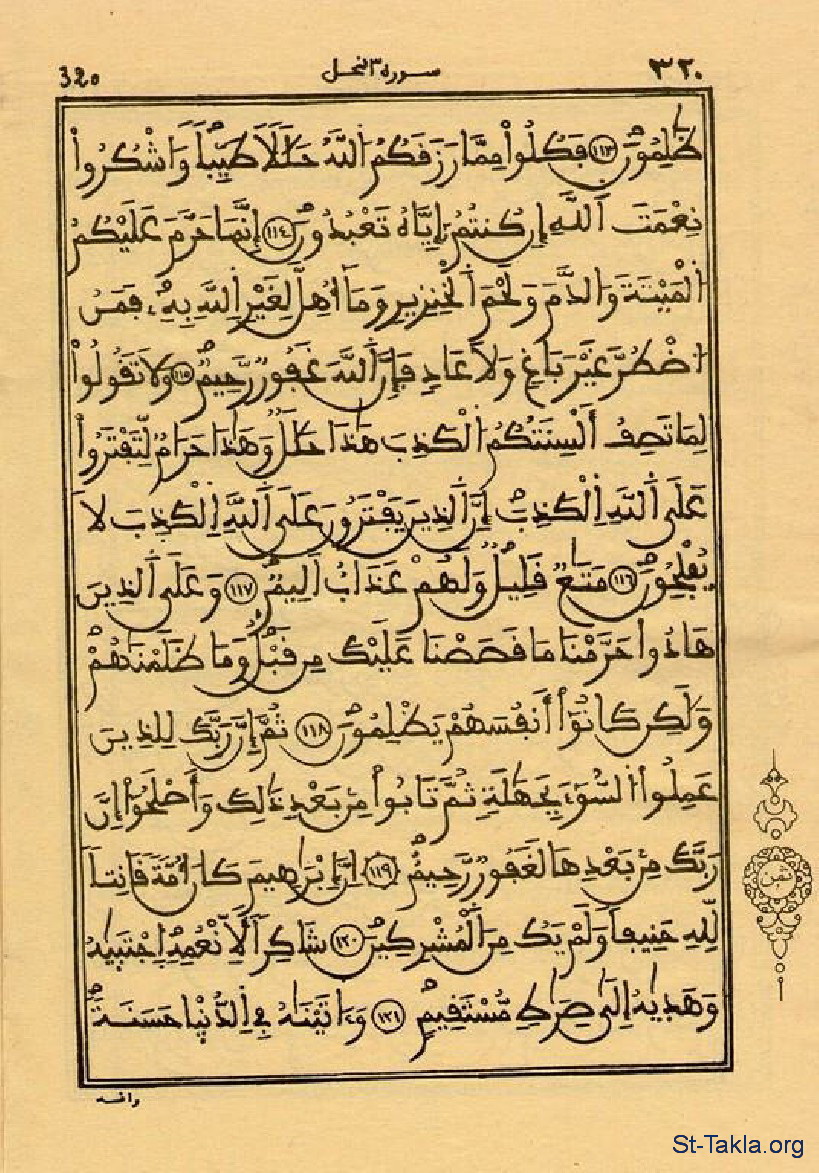 320 سورة النحل ٣٢٠
ظَٰلِمُونَ ١١٣ فَكُلُوا۟ مِمَّا رَزَقَكُمُ اللَّهُ حَلَٰلًا طَيِّبًا وَاشْكُرُوا۟
نِعْمَتَ اللَّهِ إِن كُنتُمُ إِيَّاهُ تَعْبُدُونَ ١١٤ إِنَّمَا حَرَّمَ عَلَيْكُمُ
الْمَيْتَةَ وَالدَّمَ وَلَحْمَ الْخِنزِيرِ وَمَا أُهِلَّ لِغَيْرِ اللَّهِ بِهِ فَمَنُ
اضْطُرَّ غَيْرَ بَاغٍ وَلَا عَادٍ فَإِنَّ اللَّهَ غَفُورٌ رَّحِيمٌ ١١٥ وَلَا تَقُولُوا۟
لِمَا تَصِفُ أَلْسِنَتُكُمُ الْكَذِبَ هَٰذَا حَلَٰلٌ وَهَٰذَا حَرَامٌ لِّتَفْتَرُوا۟
عَلَى اللَّهِ الْكَذِبَ إِنَّ الَّذِينَ يَفْتَرُونَ عَلَى اللَّهِ الْكَذِبَ لَا
يُفْلِحُونَ ١١٦ مَتَٰعٌ قَلِيلٌ وَلَهُمْ عَذَابٌ أَلِيمٌ ١١٧ وَعَلَى الَّذِينَ
هَادُوا۟ حَرَّمْنَا مَا قَصَصْنَا عَلَيْكَ مِن قَبْلُ وَمَا ظَلَمْنَٰهُمْ
وَلَٰكِن كَانُوٓا۟ أَنفُسَهُمْ يَظْلِمُونَ ١١٨ ثُمَّ إِنَّ رَبَّكَ لِلَّذِينَ
عَمِلُوا۟ السُّوٓءَ بِجَهَٰلَةٍ ثُمَّ تَابُوا۟ مِنۢ بَعْدِ ذَٰلِكَ وَأَصْلَحُوٓا۟ إِنَّ
رَبَّكَ مِنۢ بَعْدِهَا لَغَفُورٌ رَّحِيمٌ ١١٩ إِنَّ إِبْرَٰهِيمَ كَانَ أُمَّةً قَانِتًا
لِّلَّهِ حَنِيفًا وَلَمْ يَكُ مِنَ الْمُشْرِكِينَ ١٢٠ شَاكِرًا لِّأَنْعُمِهِ اجْتَبَيٰهُ
وَهَدَيٰهُ إِلَىٰ صِرَٰطٍ مُّسْتَقِيمٍ ١٢١ وَءَاتَيْنَٰهُ فِي الدُّنْيَا حَسَنَةً
ثمن
وانه
St-Takla.org